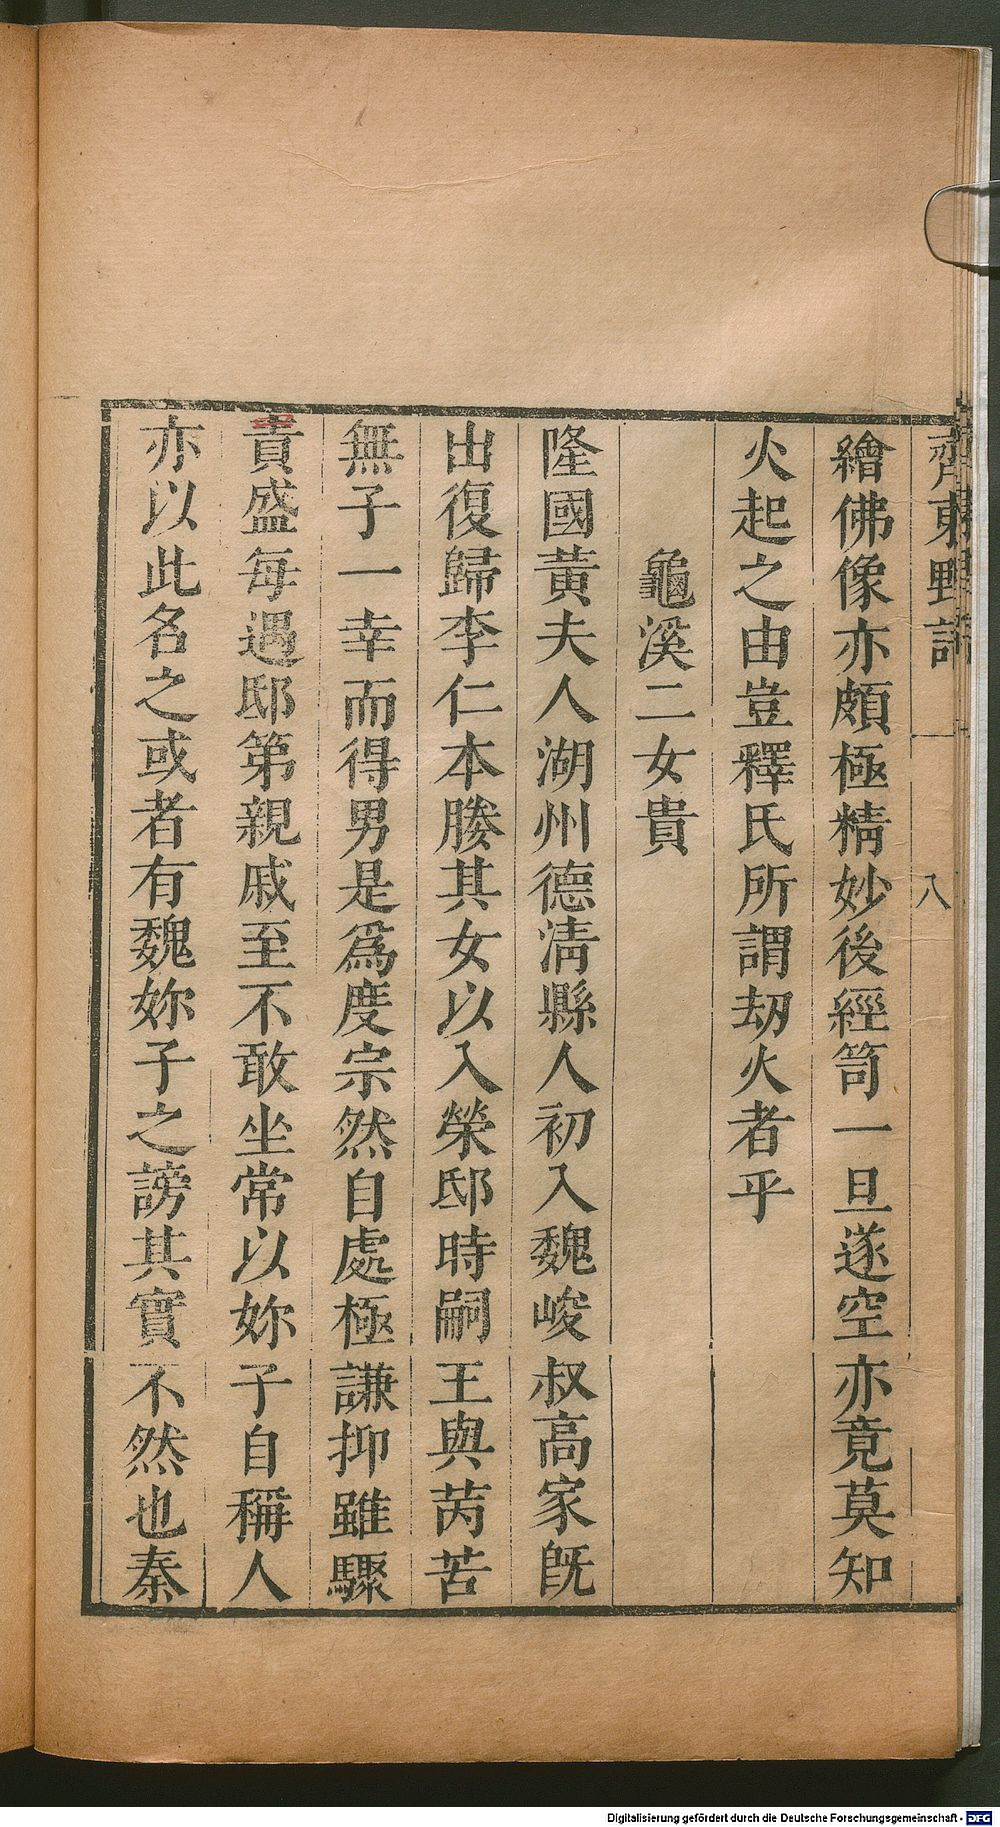 齊東野語
八
繪佛像亦頗極精妙後經笥一旦遂空亦竟莫知
火起之由豈釋氏所謂劫火者乎
龜溪二女貴
隆國黃夫人湖州德清縣人初入魏峻叔高家旣
出復歸李仁本媵其女以入榮邸時嗣王與芮苦
無子一幸而得男是爲度宗然自處極謙抑雖驟
貴盛每遇邸第親戚至不敢坐常以妳子自稱人
亦以此名之或者有魏妳子之謗其實不然也秦
Digitalisierung gefördert durch die Deutsche Forschungsgemeinschaft - DFG